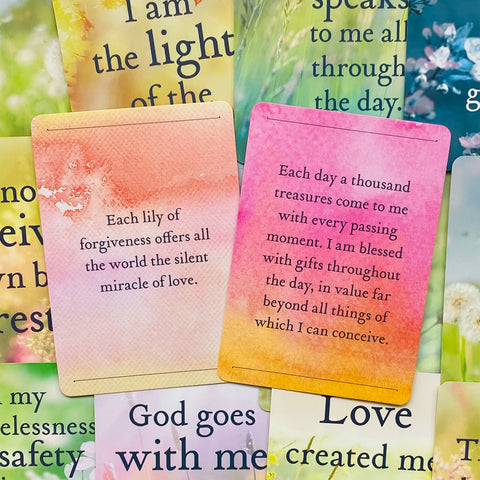 I am
the light
of the
speaks
to me all
through
the day.
g
no
eiv
vn b
rest
Each lily of
forgiveness offers all
the world the silent
miracle of love.
Each day a thousand
treasures come to me
with every passing
moment. I am blessed
with gifts throughout
the day, in value far
beyond all things of
which I can conceive.
my
elessness
safety
God goes
with me
Love
created me
T